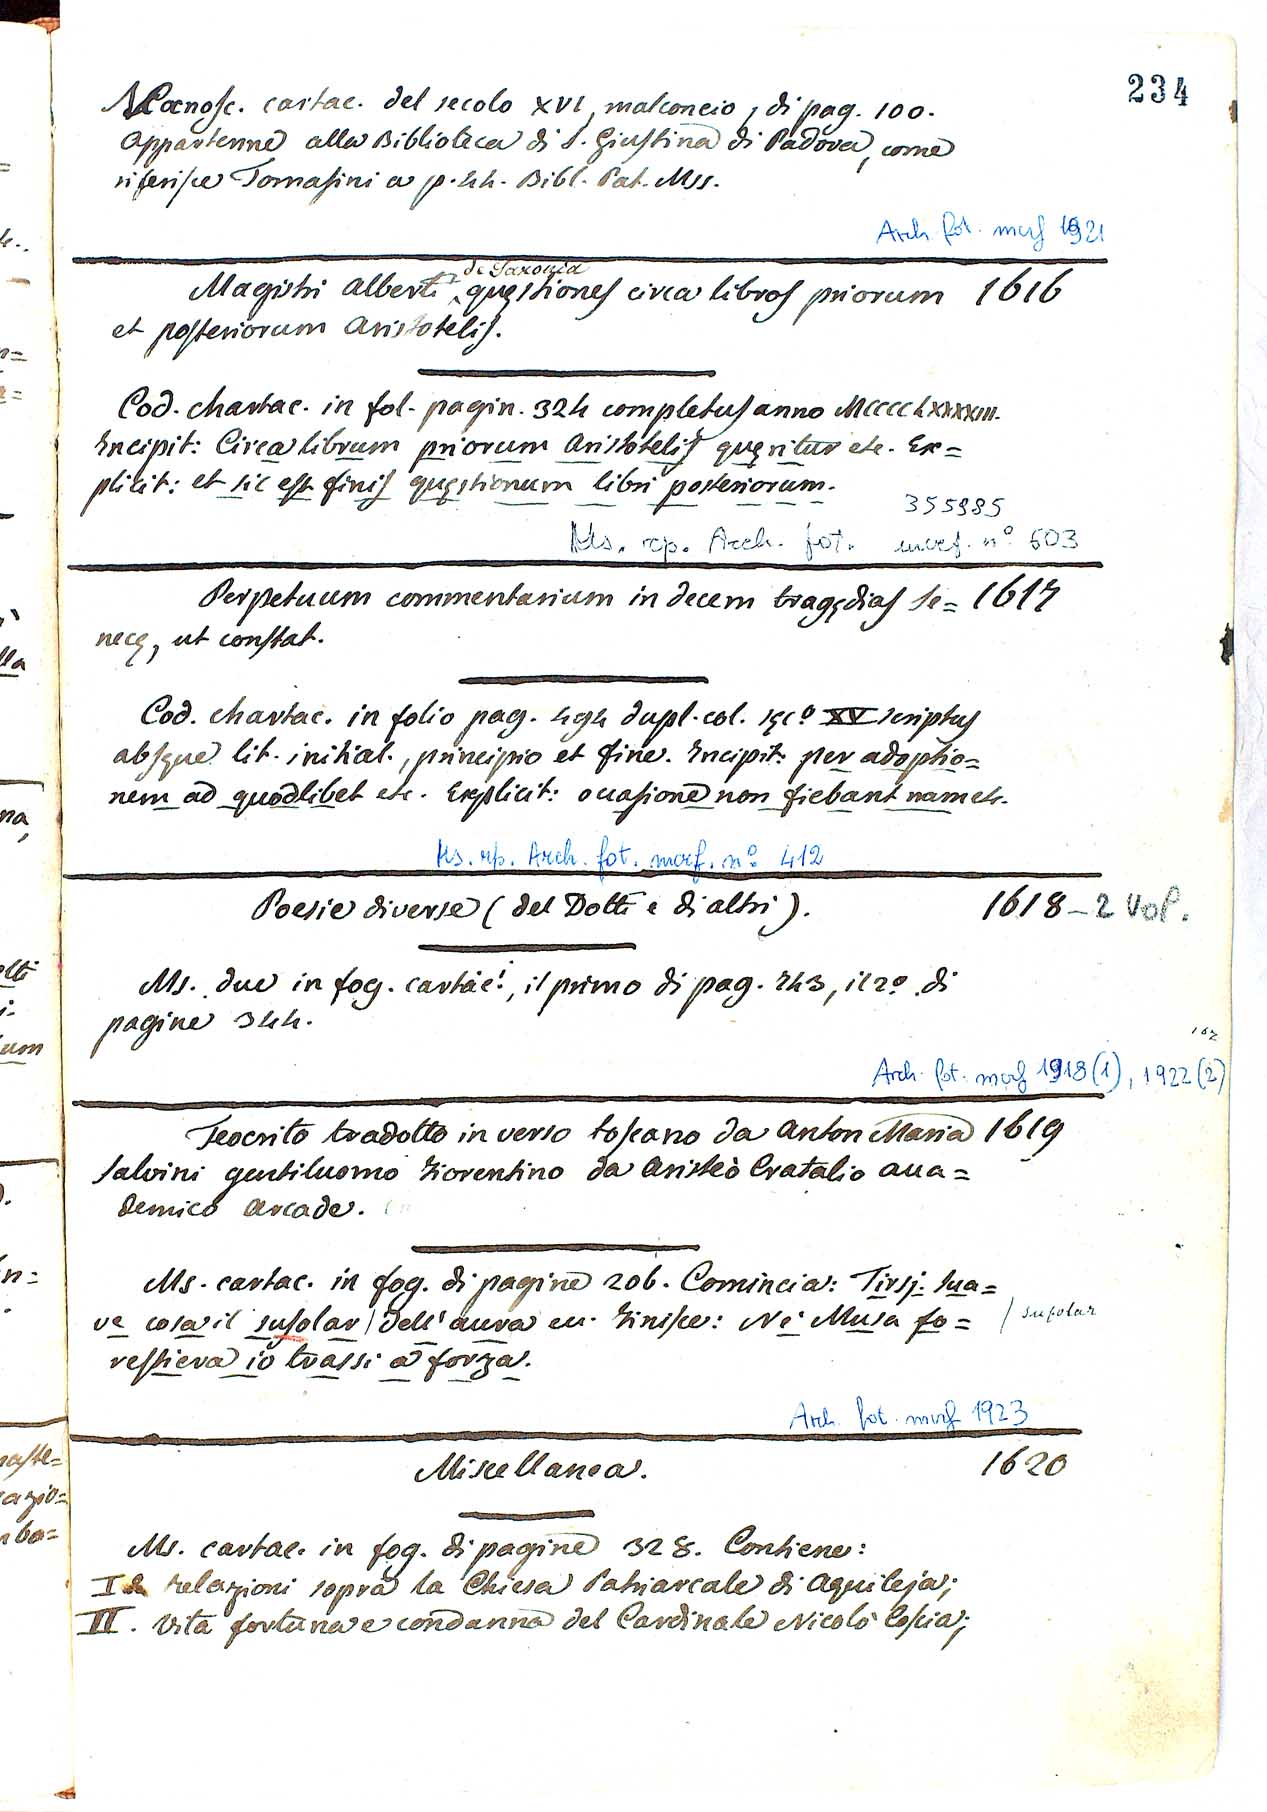 234
Manosc. cartac. del secolo XVI, malconcio, di pag. 100.
Appartenne alla Biblioteca di S. Giustina di Padova, come
riferisce Tomasini a p. 44. Bibl. Pat. Mss.
Arch. fot. morf 1921
Magistri Alberti de Saxonia quęstiones circa libros priorum 1616
et posteriorum Aristotelis.
Cod. chartac. in fol. pagin. 324 completus anno MCCCCLXXXXIII.
Incipit: Circa librum priorum Aristotelis quęritur etc. Ex=
plicit: et sic est finis quęstionum libri posteriorum.
355985
Ms. rip. Arch. fot. morf. n° 603
Perpetuum commentarium in decem tragędias Se= 1617
necę, ut constat.
Cod. chartac. in folio pag. 494 dupl. col. sęc° XV scriptus
absque lit. initial., principio et fine. Incipit: per adoptio=
nem ad quodlibet etc. Explicit: occasione non fiebant nam etc.
Ms. rip. Arch. fot. morf. n° 412
Poesie diverse (del Dotti e di altri). 1618 - 2 Vol.
Ms. due in fog. cartac.i, il primo di pag. 243, il 2° di
pagine 344.
Arch. fot. morf 1918 (1), 1922 (2)
Teocrito tradotto in verso toscano da Anton Maria 1619
Salvini gentiluomo Fiorentino da Aristeo Cratalio acca=
demico Arcade.
Ms. cartac. in fog. di pagine 206. Comincia: Tirsi. Sua=
ve cosa il susolar / dell' aura ec. Finisce: Nè Musa fo= / supolar
restiera io trassi a forza.
Arch. fot. morf 1923
Miscellanea. 1620
Ms. cartac. in fog. di pagine 328. Contiene:
I Relazioni sopra la Chiesa Patriarcale di Aquileja;
II. Vita fortuna e condanna del Cardinale Nicolò Coscia;